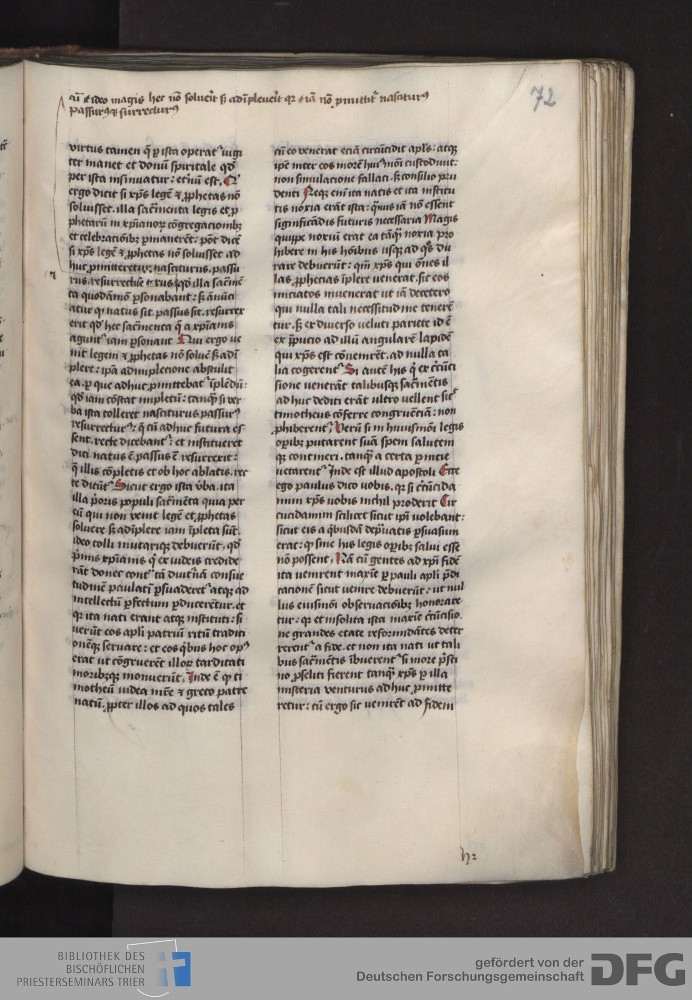 cū & ideo magis hec nō solueīt s; adīpleuēit qr & iā nō ꝓmittit nasciturꝰ
passurꝰq; surrecturꝰ
72
virtus tamen q̄ ꝑ ista operat᷒ iugi
ter manet et donū spiritale qd̄
per ista insinuatur : eternū est. Cᷓ
ergo dicit si xp̄s legē & ꝓphetas nō
soluisset. illa sacr̄menta legis et ꝓ
phetarū in xp̄ianoꝝ cōgregacionibꝫ
et celebracōibꝫ ꝑmanerēt : pōt dicē
si xp̄s legē & ꝓphetas nō soluisset ad
huc ꝓmitteretur nasciturus. passu
rus. resurrecturus qd̄ illa sacrm̄e
ta quodāmō ꝑsonabant : s; ānūci
atur qꝛ natus sit. passus sit. resurrex
erit qd̄ hec sacr̄menta q̄ a xp̄ianis
agūt᷒ iam ꝑsonant Qui ergo ve
nit legem & ꝓphetas nō soluē s; adī
plere : ip̄a adimplecione abstulit
ea. ꝑ que adhuc ꝓmittebat᷒ īplēdū :
qd̄ iam cōstat impletū : tanqᷓ si ver
ba ista tolleret nasciturus passurꝰ
resurrecturꝰ : q̄ cū adhuc futura es
sent. recte dicebant᷒ : et institueret
dici natus ē passus ē resurrexit :
q̄ illis cōpletis et ob hoc ablatis. rec
te dicūt᷒ Sicut ergo ista v̄ba. ita
illa p̄oris populi sacr̄menta quia per
eū qui non venit legē et ꝓphetas
soluere s; adīplere iam īpleta sūt.
ideo tolli mutariq; debuerūt. qd̄
p̄mis xp̄ianis q̄ ex iudeis credide
rāt donec contᷓ tā diut᷒nā consue
tudinē paulatī ꝑsuaderet᷒ atq; ad
intellectū ꝑfectum ꝑducerētur. et
qꝛ ita nati erant atq; instituti : si
uerūt eos apl̄i patriū ritū traditi
onēq; seruare : et eos q̄bus hoc opꝰ
erat ut cōgruerēt illoꝝ tarditati
moribꝫq; monuerūt. Inde ē qꝛ ti
motheū iudea mr̄e & greco patre
natū. ꝓpter illos ad quos tales
cū eo venerat eciā circūcidit apl̄s : atq;
ip̄e inter eos morē huiꝰmōi custodiuit :
non simulacione fallaci. s; consilio pru
denti Neq; enī ita natis et ita institu
tis noxia erāt ista : qᷓuis iā nō essent
significādis futuris necessaria Magis
quippe noxiū erat ea tāqᷓ noxia pro
hibere in his hoībus usq; ad qᷓs du
rare debuerūt : qm̄ xp̄s qui ōnes il
las ꝓphecias īplere venerat. sic eos
iniciatos inuenerat ut iā decetero
qui nulla tali necessitudine tenerē
tur. s; ex diuerso veluti pariete id ē
ex p̄pucio ad illū angularē lapidē
qui xp̄s est cōuenirēt. ad nulla ta
lia cogerent᷒ Si autē his q̄ ex circūci
sione venerāt talibusq; sacr̄mētis
ad huc dediti erāt ultro vellent sic᷒
timotheus cōferre congruenciā : non
ꝓhiberent᷒. Verū si in huiusmōi legis
oꝑibꝫ putarent suā spem salutem
qꝫ contineri. tanqᷓ a certa ꝑnicie
uetarent᷒ Inde est illud apostoli Ecce
ego paulus dico uobis. qꝛ si circūcida
mini xp̄s uobis nichil proderit Cir
cucidamini scilicet sicut ip̄i volebant :
sicut eis a q̄busdā deprauatis ꝑsuasum
erat : qꝛ sine his legis oꝑibꝫ salui esse
nō possent. Nā cū gentes ad xp̄i fidē
ita uenirent maxīe ꝑ pauli apl̄i p̄di
cacionē sicut venire debuerūt : ut nul
lus eiusmōi obseruaciōibꝫ honorare
tur : qꝛ et insolita ista maxīe circūcisio
ne grandes etate reformidātes deter
rerent᷒ a fide. et non ita nati ut tali
bus sacr̄mētis ībuerent᷒ si more p̄sti
no ꝓseliti fierent tanqᷓ xp̄s ꝑ illa
misteria venturus adhuc ꝓmitte
retur : cū ergo sic venirēt ad fidem
BIBLIOTHEK DES
BISCHÖFLICHEN
PRIESTERSEMINARS TRIER
gefördert von der
Deutschen Forschungsgemeinschaft
DFG